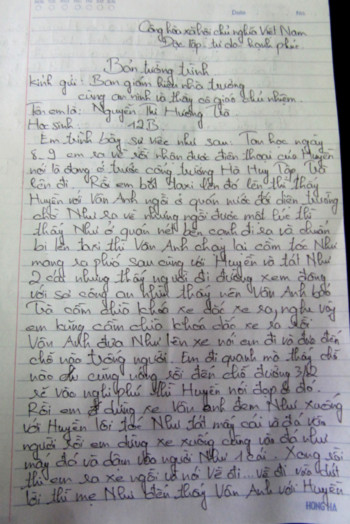 Date No.
Cộng hòa xã hội chủ nghĩa Việt Nam
Độc lập tự do hạnh phúc
Bản tường trình
Kính gửi: Ban giám hiệu nhà trường
cùng an ninh và thầy cô giáo chủ nhiệm.
Tên em là: Nguyễn Thị Hương Trà
Học sinh: 12B
Em trình bày sự việc như sau: Tan học ngày
8-9 em ra về rồi nhận được điện thoại của Huyền
nói là đang ở trước cổng trường Hà Huy Tập Trà
lên đi. Rồi em bắt taxi lên đó lên thì thấy
Huyền với Vân Anh ngồi ở quán nước đối diện trường
chờ Như ra về nhưng ngồi được một lúc thì
thấy Như ở quán nét bên cạnh đi ra và chuẩn
bị lên taxi thì Vân Anh chạy lại cầm tóc Như
mang ra phía sau cùng với Huyền và tát Như
2 cái nhưng thấy người đi đường xem đông
với sợ công an nhìn thấy nên Vân Anh bảo
Trà cầm chìa khóa xe dắc xe ra, nghe vậy
em cũng cầm chìa khóa dắc xe ra rồi
Vân Anh đưa Như lên xe nói em đi và đưa đến
chỗ nào trống người. Em đi quanh mà thấy chỗ
nào chi cũng đông rồi đến chỗ đường 3/2
rẽ vào nghi phú thì Huyền nói dọp ở đó.
Rồi em ở dừng xe Vân Anh đem Như xuống
với Huyền lôi tóc Như tát mấy cái và đá vào
người rồi em dừng xe xuống cũng vào đá như
mấy đá và dậm vào người Như 1 cái. Xong rồi
thì em ra xe ngồi và nó Về đi... về đi vừa dứt
lời thì mẹ Như đến thấy Vân Anh với Huyền
HONG HA